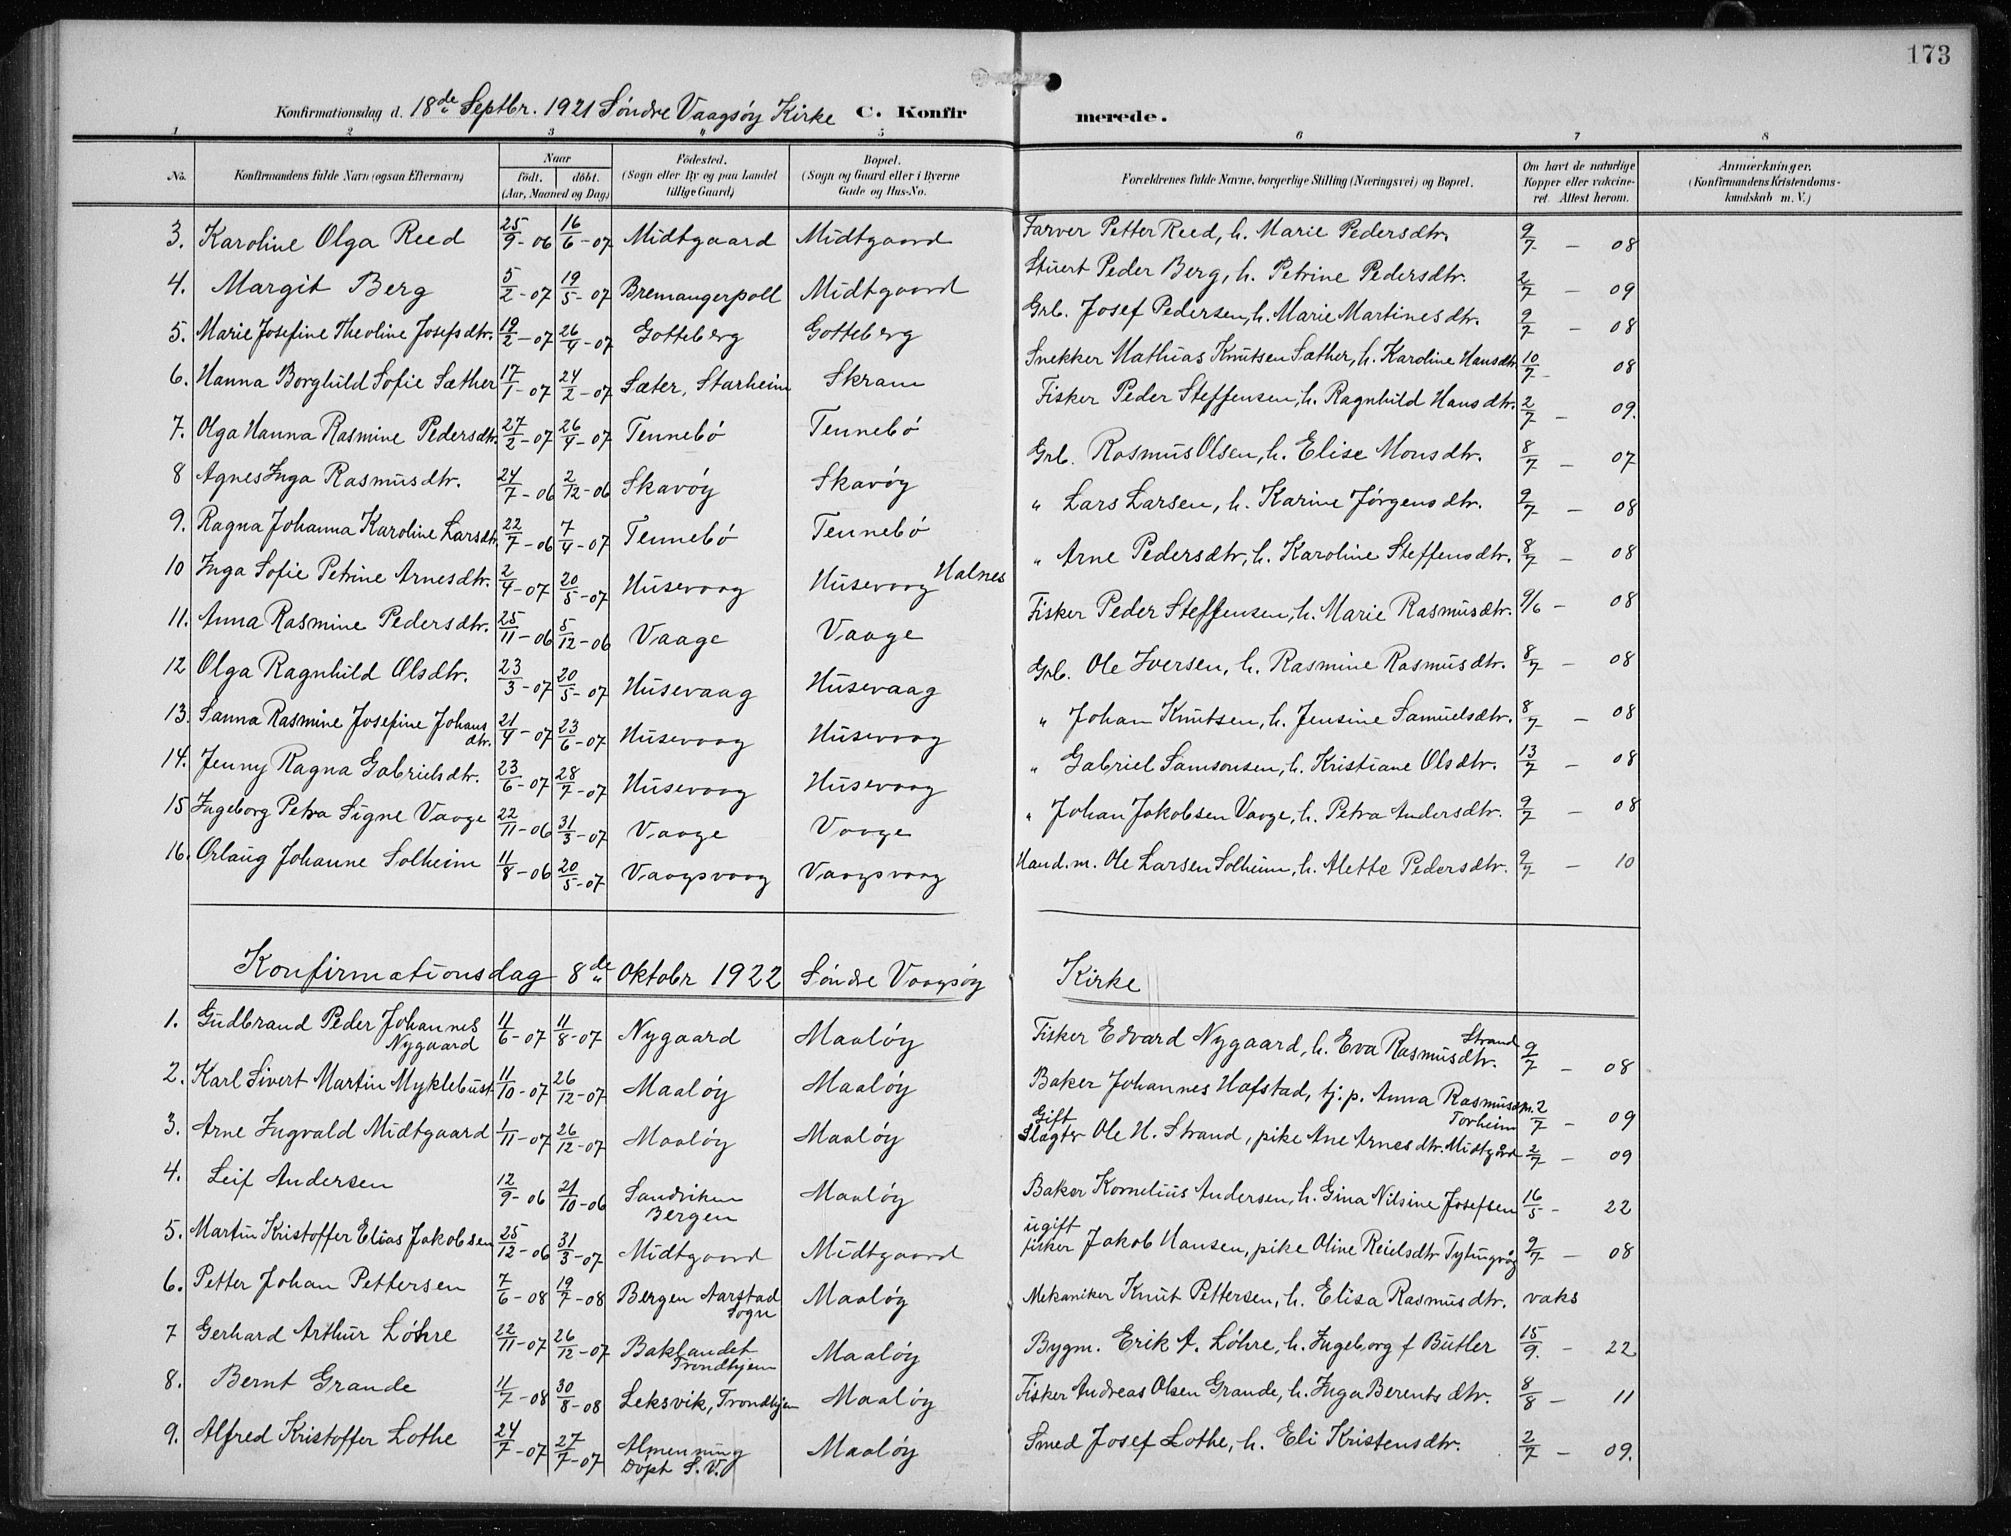 173
Konfirmationsdag d. 18de Septbr. 1921 Søndre Vaagsøy Kirke C. Konfirmerede.
1 2 3 4 5 6 7 8
No. Konfirmandens fulde Navn (ogsaa Efternavn) Naar født. døbt. (Aar, Maaned og Dag) Fødested. (Sogn eller By og paa Landet tillige Gaard) Bopæl. (Sogn og Gaard eller i Byerne Gade og Hus-No. Forældrenes fulde Navne, borgerlige Stilling (Næringsvei) og Bopæl. Om havt de naturlige Kopper eller vakcineret. Attest herom. Anmærkninger. (Konfirmandens Kristendomskundskab m. V.)
3. Karoline Olga Reed 25/9-06 16/6-07 Midtgaard Midtgaard Farver Petter Reed, h. Marie Pedersdtr. 9/7 - 08
4. Margit Berg 5/2-07 19/5-07 Bremangerpoll Midtgaard Stuert Peder Berg, h. Petrine Pedersdtr. 2/7 - 09
5. Marie Josefine Theoline Josefsdtr. 19/2-07 26/4-07 Gotteberg Gotteberg Grb. Josef Pedersen, h. Marie Martinesdtr. 9/7 - 08
6. Hanna Borghild Sofie Sæther 17/1-07 24/2-07 Sæter, Starheim Skram Snekker Mathias Knutsen Sæther, h. Karoline Hansdtr. 10/7 - 08
7. Olga Hanna Rasmine Pedersdtr. 27/2-07 26/4-07 Tennebø Tennebø Fisker Peder Steffensen, h. Ragnhild Hansdtr. 2/7 - 09.
8 Agnes Inga Rasmusdtr. 24/7-06 2/12-06 Skavøy Skavøy Grb. Rasmus Olsen, h. Elise Monsdtr. 8/7 - 07
9. Ragna Johanna Karoline Larsdtr. 22/7-06 7/4-07 Tennebø Tennebø " Lars Larsen, h. Karine Jørgensdtr. 9/7 - 08
10 Inga Sofie Petrine Arnesdtr. 2/4-07 20/5-07 Husevaag Husevaag Halnes " Arne Pedersdtr, h. Karoline Steffensdtr. 8/7 - 08
11. Anna Rasmine Pedersdtr. 25/11-06 5/12-06 Vaage Vaage Fisker Peder Steffensen, h. Marie Rasmusdtr. 9/6 - 08
12 Olga Ragnhild Olsdtr. 23/3-07 20/5-07 Husevaag Husevaag Grb. Ole Iversen, h. Rasmine Rasmusdtr. 8/7 - 08
13. Sanna Rasmine Josefine Johansdtr. 21/4-07 23/6-07 Husevaag Husevaag " Johan Knutsen, h. Jensine Samuelsdtr. 8/7 - 08
14. Jenny Ragna Gabrielsdtr. 23/6-07 28/7-07 Husevaag Husevaag " Gabriel Samsonsen, h. Kristiane Olsdtr. 13/7 - 08
15 Ingeborg Petra Signe Vaage 22/11-06 31/3-07 Vaage Vaage " Johan Jakobsen Vaage, h. Petra Andersdtr. 9/7 - 08
16. Orlaug Johanne Solheim 11/8-06 20/5-07 Vaagsvaag Vaagsvaag Hand.m. Ole Larsen Solheim, h. Alette Pedersdtr. 9/7 - 10
Konfirmationsdag 8de Oktobr 1922 Søndre Vaagsøy Kirke
1. Gudbrand Peder Johannes Nygaard 11/6-07 11/8-07 Nygaard Maaløy Fisker Edvard Nygaard, h. Eva Rasmusdtr. Strand 9/7 - 08
2. Karl Sivert Martin Myklebust 11/10-07 26/12-07 Maaløy Maaløy Baker Johannes Hafstad, tj.p. Anna Rasmusdtr. Torheim 2/7 - 09
3. Arne Ingvald Midtgaard 1/11-07 26/12-07 Maaløy Maaløy Gift Slagter Ole H. Strand, pike Ane Arnesdtr. Midtgård 2/7 - 09
4. Leif Andersen 12/9-06 21/10-06 Sandviken Bergen Maaløy Baker Kornelius Andersen, h. Gina Nilsine Josefsen 16/5 - 22
5. Martin Kristoffer Elias Jakobsen 25/12-06 31/3-07 Midtgaard Midtgaard ugift fisker Jakob Hansen, pike Oline Reielsdtr Tytingvåg 9/7 - 08
6. Petter Johan Pettersen 7/6-08 19/7-08 Bergen Aarstad Sogn Maaløy Mekaniker Knut Pettersen, h. Elisa Rasmusdtr. vaks
7 Gerhard Arthur Løhre 22/11-07 26/12-07 Baklandet Trondhjem Maaløy Bygm. Erik A. Løhre, h. Ingeborg f Butler 15/9. - 22
8. Bernt Grande 11/7-08 30/8-08 Leksvik, Trondhjem Maaløy Fisker Andreas Olsen Grande, h. Inga Berents dtr. 8/8 - 11
9. Alfred Kristoffer Lothe 24/7-07 27/7-07 Almenning Døpt S.V. Maaløy Smed Josef Lothe, h. Eli Kristensdtr. 2/7 - 09.